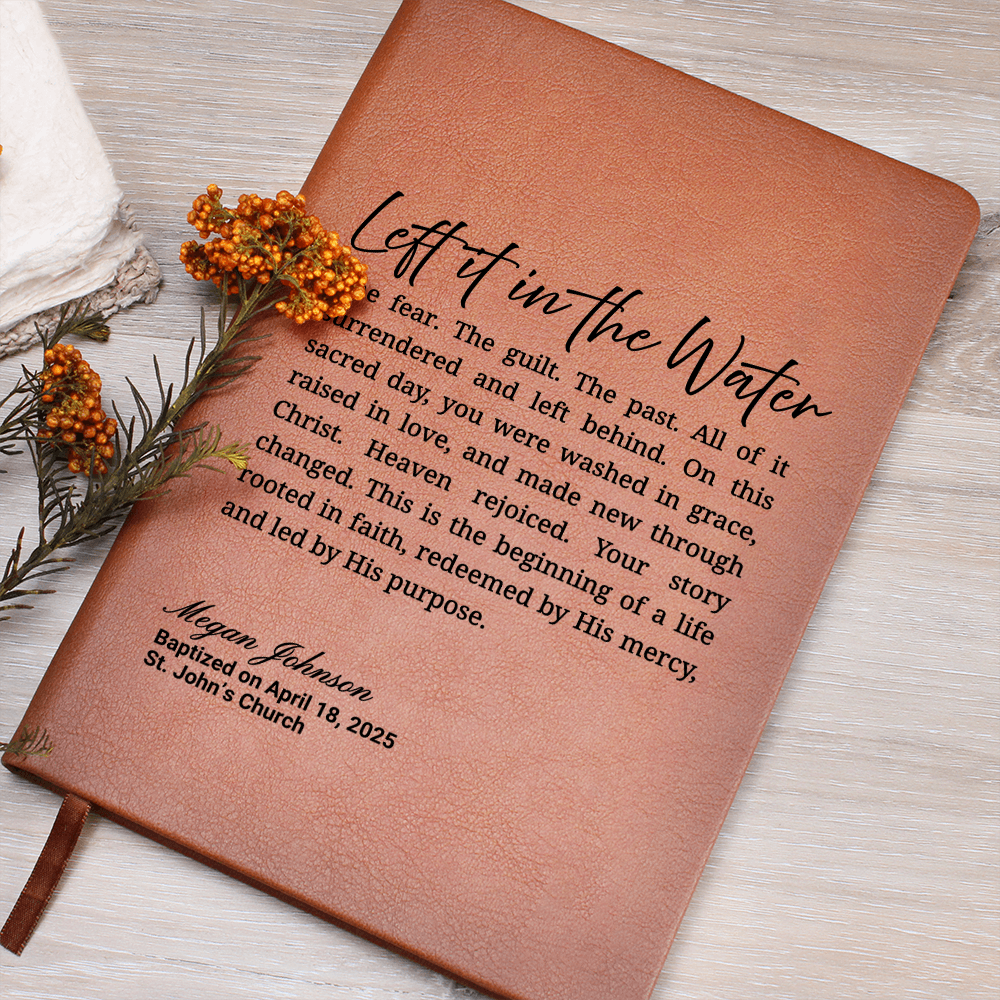 Left it in the Water
e fear. The guilt. The past. All of it
surrendered and left behind. On this
sacred day, you were washed in grace,
raised in love, and made new through
Christ. Heaven rejoiced. Your story
changed. This is the beginning of a life
rooted in faith, redeemed by His mercy,
and led by His purpose.
Megan Johnson
Baptized on April 18, 2025
St. John's Church